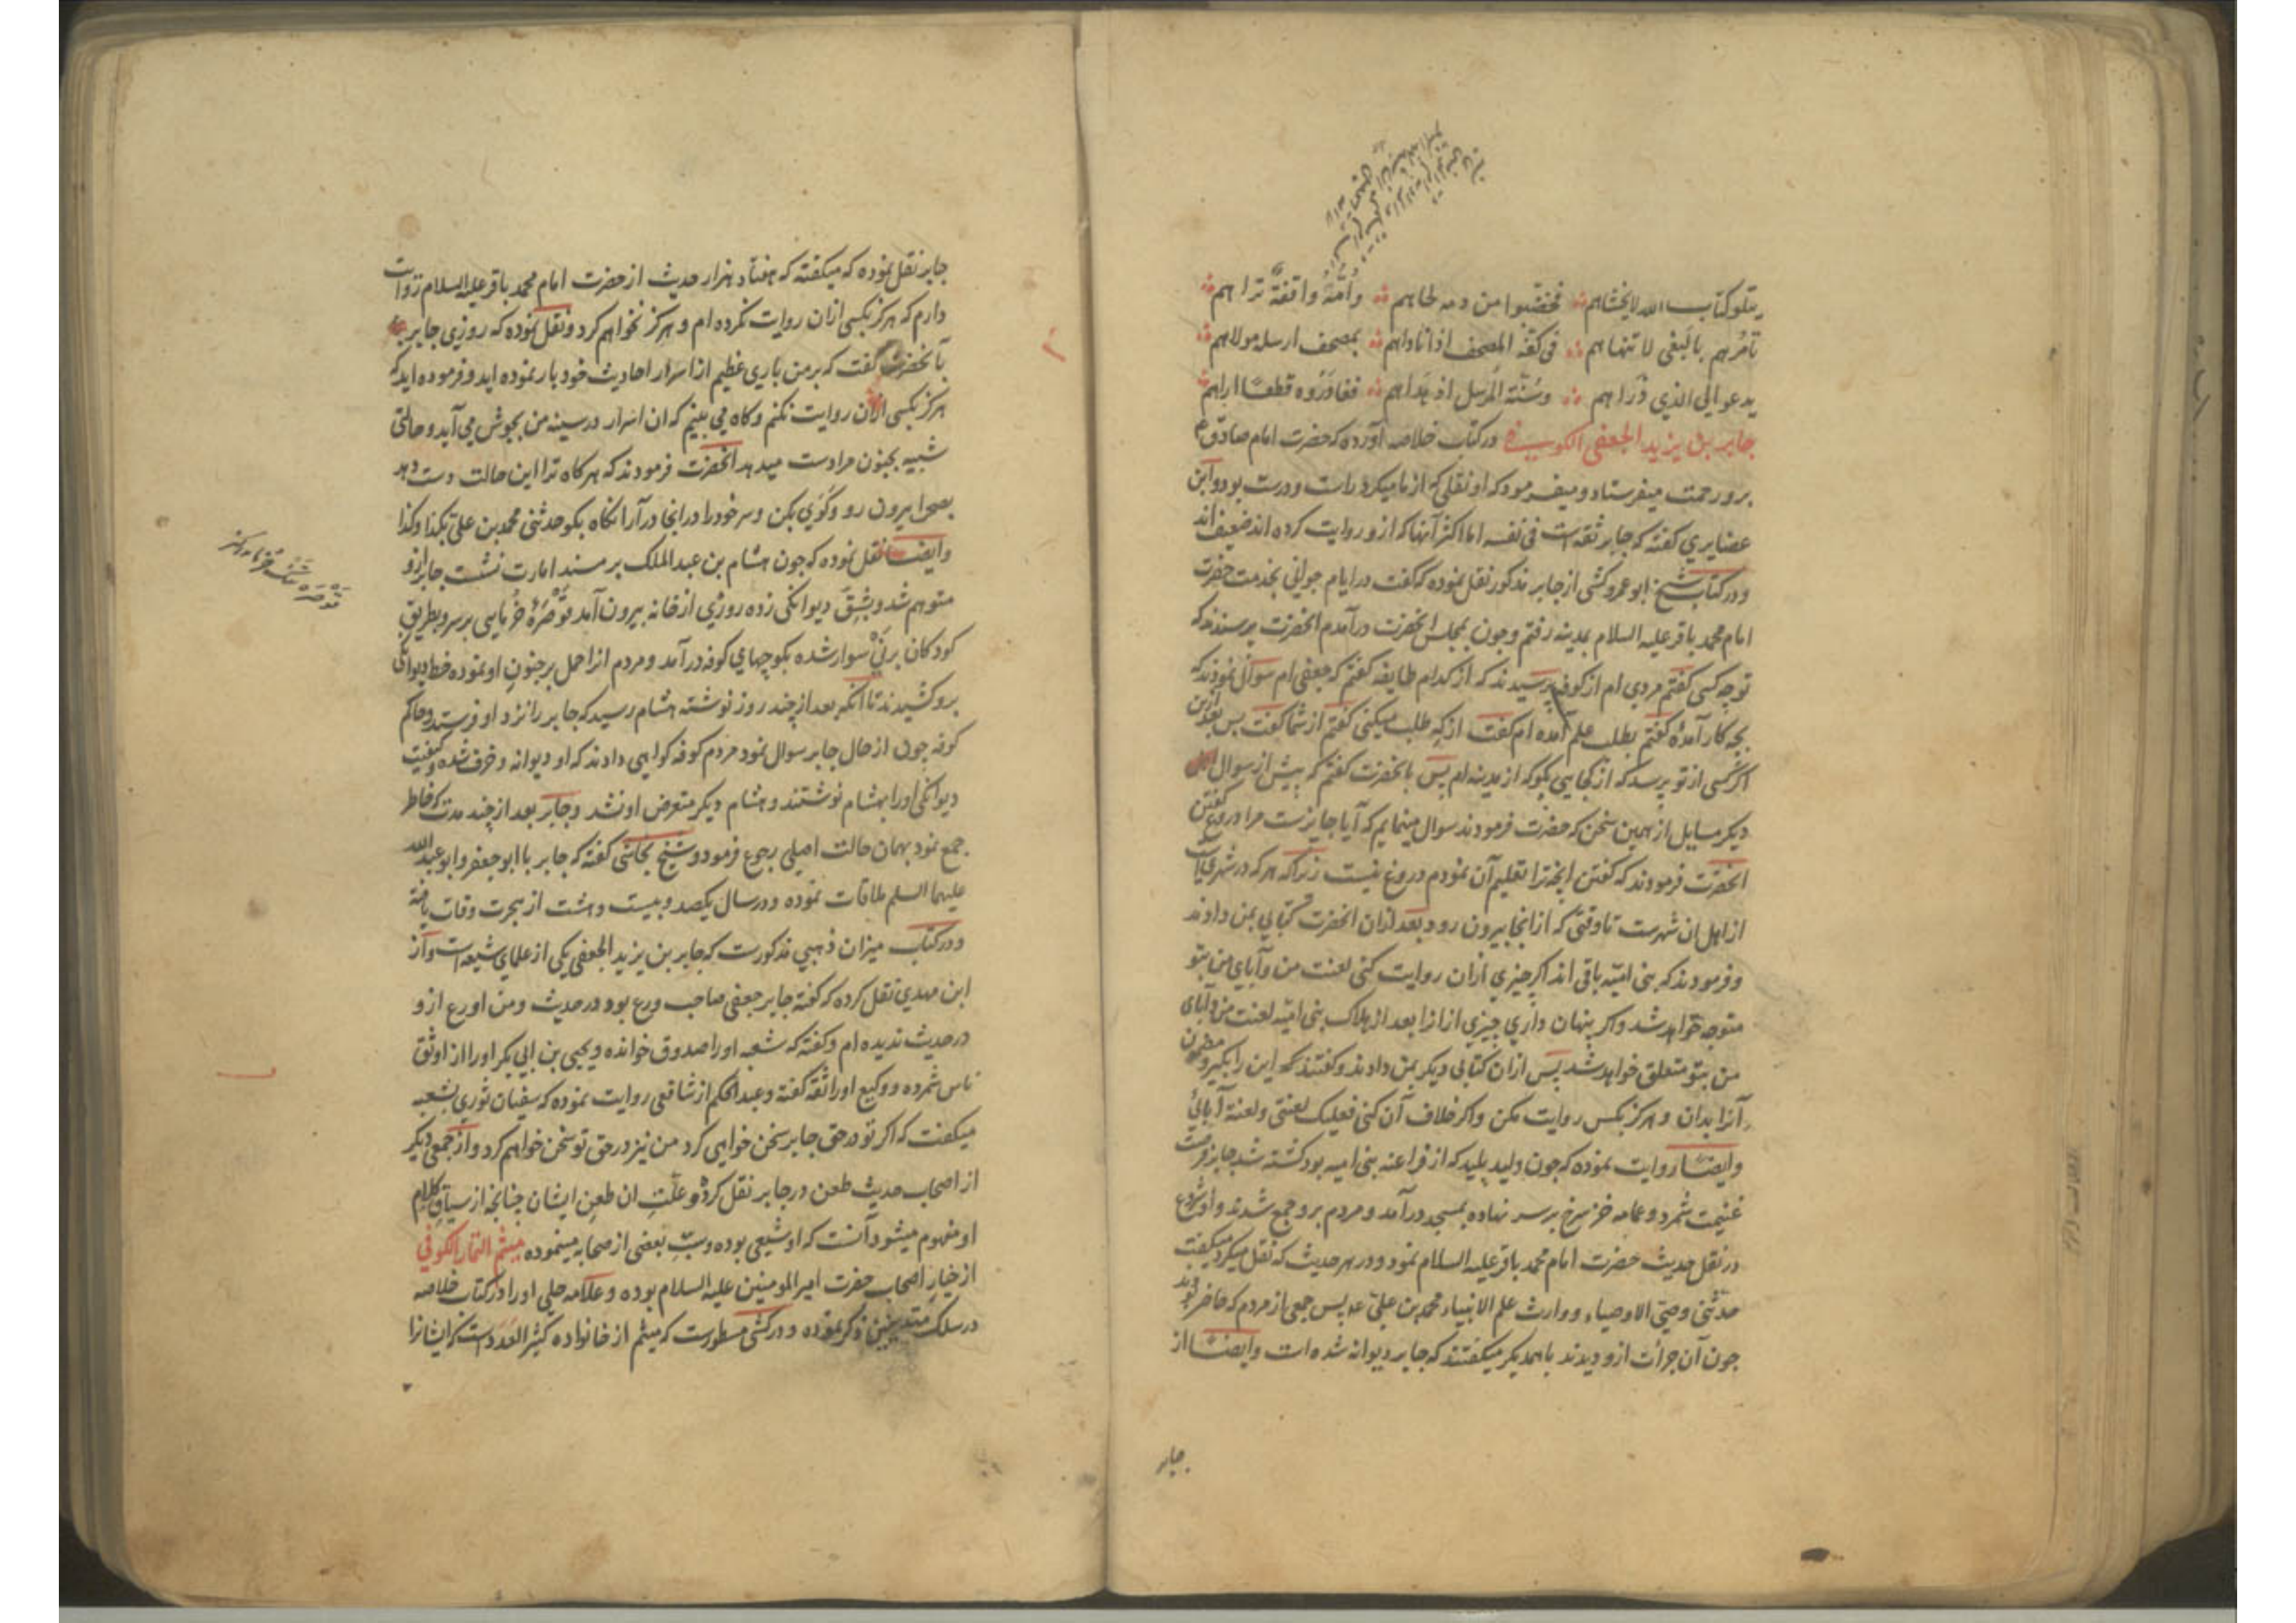 یتلو کتاب الله لا یخشاهم فخضبوا من دمه لحاهم وامّهٌ واقفةٌ تراهم
تامرهم بالبغی لا تنهاهم فی کفّه المصحف اذ اتاهم بمصحف ارسله مولاهم
یدعو الی الذی دراهم وسنّة المرسل اذ هداهم فغادروه قطعًا اراهم
جابر بن یزید الجعفی الکوفی در کتاب خلاصه آورده که حضرت امام صادق ع
برو رحمت میفرستاد و میفرمود که او نقلی که از ما میکرد راست و درست بود و ابن
غضایری گفته که جابر ثقه است فی نفسه اما اکثر آنها که ازو روایت کرده اند ضعیف اند
و در کتاب شیخ ابو عمرو کشی از جابر مذکور نقل نموده که گفت در ایام جوانی بخدمت حضرت
امام محمد باقر علیه السلام بمدینه رفتم و چون بمجلس آنحضرت درآمدم آنحضرت پرسیدند که
تو چه کسی گفتم مردی ام از کوفه پرسیدند که از کدام طایفه گفتم که جعفی ام سوال نمودند که
بچه کار آمدهٔ گفتم بطلب علم آمده ام گفت از که طلب میکنی گفتم از شما گفت پس بعد ازین
اگر کسی از تو پرسد که از کجایی بگو که از مدینه ام پس بآنحضرت گفتم که پیش از سوال
دیگر مسایل از همین سخن که حضرت فرمودند سوال مینمایم که آیا جایزست مرا دروغ گفتن
آنحضرت فرمودند که گفتن آنچه ترا تعلیم آن نمودم دروغ نیست زیرا که هر که در شهری است
از اهل ان شهرست تا وقتی که از انجا بیرون رود بعد ازان آنحضرت کتابی بمن دادند
و فرمودند که بنی امیه باقی اند اگر چیزی ازان روایت کنی لعنت من و آبای من بتو
متوجه خواهد شد و اگر پنهان داری چیزی ازانرا بعد از هلاک بنی امیه لعنت من و آبای
من بتو متعلق خواهد شد پس ازان کتابی دیگر بمن دادند و گفتند که این را بگیر و مضمون
آنرا بدان و هرگز بکس روایت مکن و اگر خلاف آن کنی فعلیک لعنتی و لعنة آبائی
و ایضا روایت نموده که چون ولید پلید که از فراعنه بنی امیه بود کشته شد جابر فرصت
غنیمت شمرد و عمامه خز سرخ بر سر نهاده بمسجد درآمد و مردم برو جمع شدند و او شروع
در نقل حدیث حضرت امام محمد باقر علیه السلام نمود و در هر حدیث که نقل میکرد میگفت
حدثنی وصیّ الاوصیاء و وارث علم الانبیاء محمد بن علیّ ع پس جمعی از مردم که حاضر بودند
چون آن جرأت ازو دیدند با همدیگر میگفتند که جابر دیوانه شده است و ایضا از
جابر
جابر نقل نموده که میگفته که هفتاد هزار حدیث از حضرت امام محمد باقر علیه السلام روایت
دارم که هرگز بکسی ازان روایت نکرده ام و هرگز نخواهم کرد و نقل نموده که روزی جابر
بآنحضرت گفت که بر من باری عظیم از اسرار احادیث خود بار نموده اید و فرموده اید که
هرگز بکسی ازان روایت نکنم و گاه می بینم که ان اسرار در سینه من بجوش می آید و حالتی
شبیه بجنون مرا دست میدهد آنحضرت فرمودند که هرگاه ترا این حالت دست دهد
بصحرا بیرون رو و گوی بکن و سر خود را در انجا درآر آنگاه بگو حدثنی محمد بن علیّ بکذا و کذا
و ایضا نقل نموده که چون هشام بن عبد الملک بر مسند امارت نشست جابر ازو
متوهم شد و بشقّ دیوانگی زده روزی از خانه بیرون آمد قوصرهٔ خرمایی بر سر و بطریق
کودکان بر نی سوار شده بکوچهای کوفه درآمد و مردم انرا حمل بر جنون او نموده خط دیوانگی
برو کشیدند تا آنکه بعد از چند روز نوشته هشام رسید که جابر را نزد او فرستند و حاکم
کوفه چون از حال جابر سوال نمود مردم کوفه گواهی دادند که او دیوانه و خرف شده و کیفیت
دیوانگی او را بهشام نوشتند و هشام دیگر متعرض او نشد و جابر بعد از چند مدت که خاطر
جمع نمود بهمان حالت اصلی رجوع فرمود و شیخ نجاشی گفته که جابر با ابو جعفر و ابو عبد الله
علیهما السلم ملاقات نموده و در سال یکصد و بیست و هشت از هجرت وفات یافته
و در کتاب میزان ذهبی مذکورست که جابر بن یزید الجعفی یکی از علمای شیعه است و از
ابن مهدی نقل کرده که گفته جابر جعفی صاحب ورع بود در حدیث و من اورع ازو
در حدیث ندیده ام و گفته که شعبه او را صدوق خوانده و یحیی بن ابی بکر او را از اوثق
ناس شمرده و وکیع او را ثقه گفته و عبد الحکم از شافعی روایت نموده که سفیان ثوری بشعبه
میگفت که اگر تو در حق جابر سخن خواهی کرد من نیز در حق تو سخن خواهم کرد و از جمعی دیگر
از اصحاب حدیث طعن در جابر نقل کرده و علّت ان طعن ایشان چنانچه از سیاق کلام
او مفهوم میشود آنست که او شیعی بوده و سبّ بعضی از صحابه مینموده میثم التمار الکوفی
از خیار اصحاب حضرت امیر المومنین علیه السلام بوده و علامه حلی او را در کتاب خلاصه
در سلک متدینین ذکر نموده و در کشی مسطورست که میثم از خانواده کثیر العدد است که ایشانرا